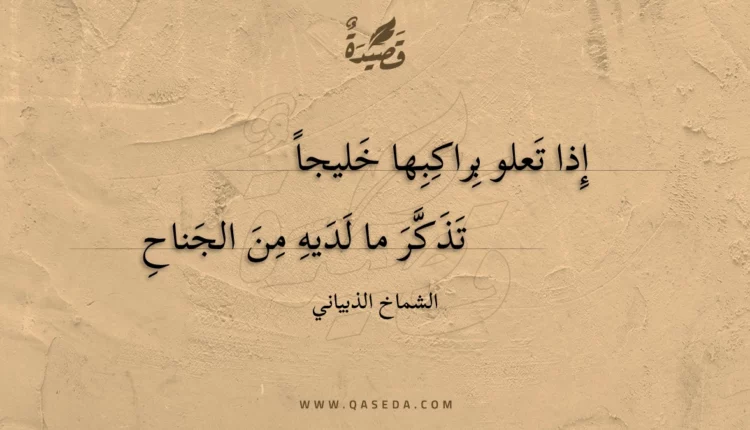 قَصِيدَةٌ
إِذا تَعلو بِراكِبِها خَليجاً
تَذَكَّرَ ما لَدَيهِ مِنَ الجَناحِ
الشماخ الذبياني
WWW.QASEDA.COM